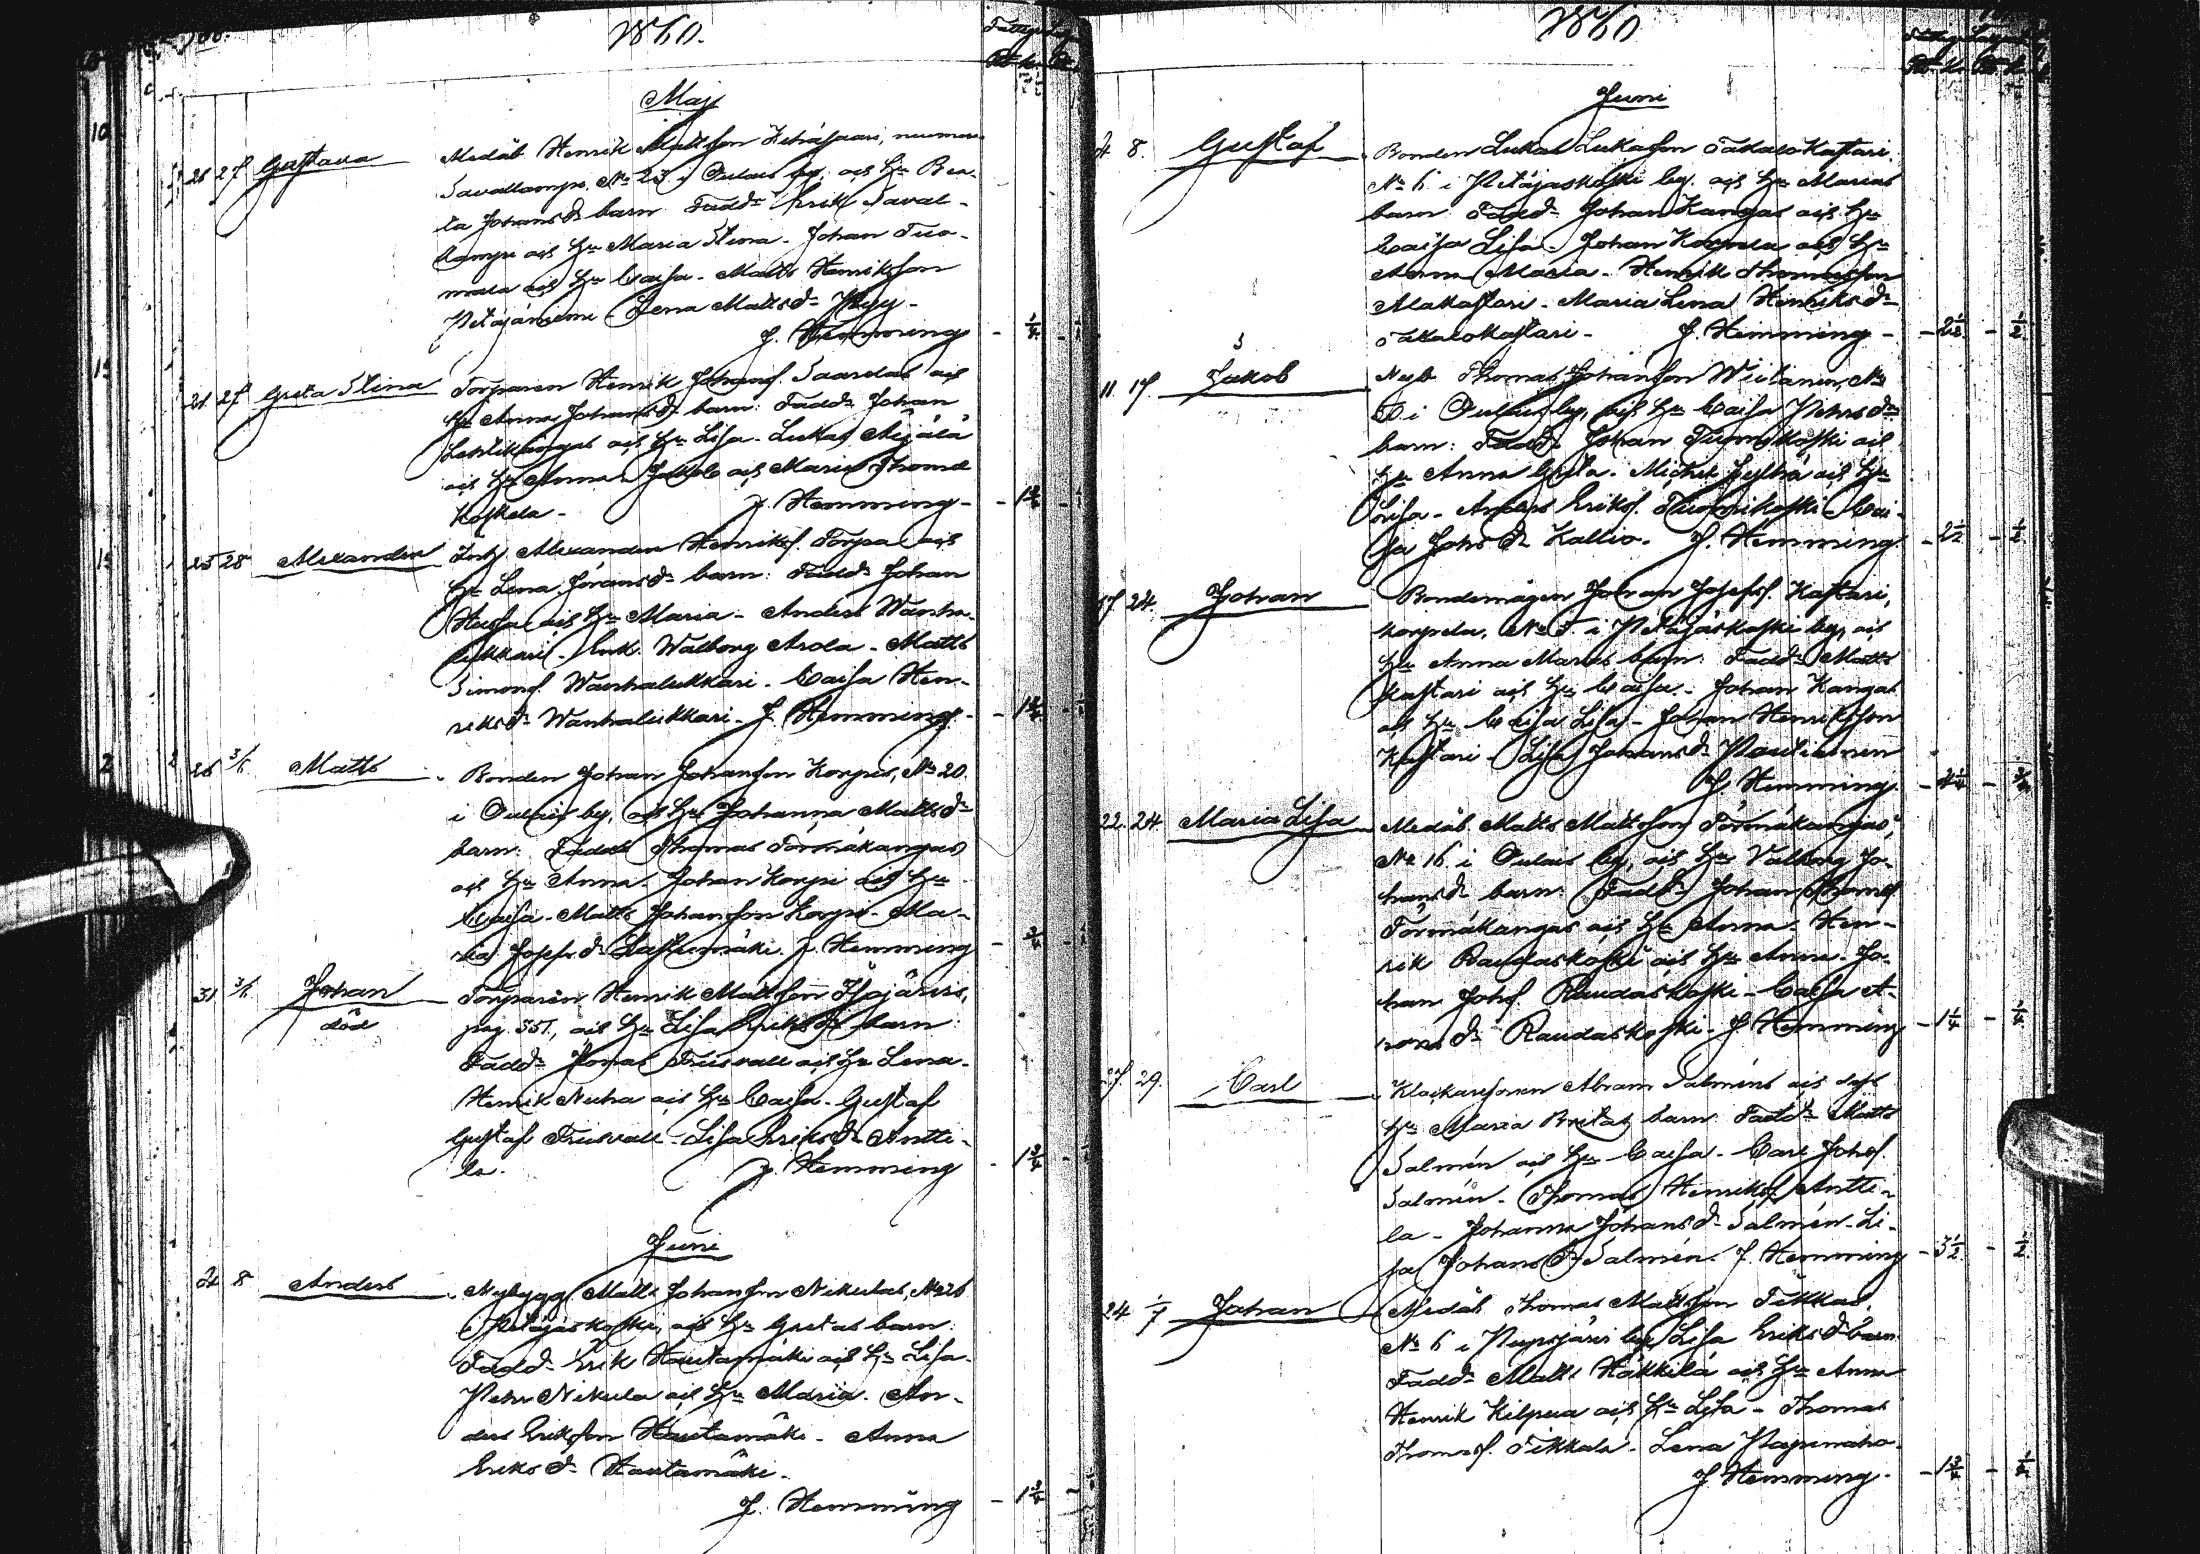 1860.
Maj
26 27 Gustava Medåb. Henrik Mattsson Ketäjsaari, numera
Savallampi, No 23 i Oulais by, a/s H:u Bea-
ta Johansd:r barn. Fadd:r Erik Saval-
lampi a/s H:u Maria Stina - Johan Tuo-
maala a/s H:u Caisa - Matts Henriksson
Petäjäniemi - Lena Mattsd:r
J. Hemming
21 27 Greta Stina Torparen Henrik Johanss. Saarelas a/s
H:u Anna Johansd:r barn: Fadd:r Johan
Lehtikangas a/s H:u Lisa - Lukas Äijälä
a/s H:u Anna - Jakob a/s Maria Thomæ
Koskela -
J. Hemming - - 1 3/4
25 28 Alexander Inh. Alexander Henrikss. Torpa a/s
H:u Lena Göransd:r barn: Fadd:r Johan
a/s H:u Maria - Anders Wanha-
lukkari - Enk. Walborg Arola - Matts
Simonss. Wanhalukkari - Caisa Hen-
riksd:r Wanhalukkari - J. Hemming. - 1 3/4
26 3/6 Matts Bonden Johan Johansson Korpis, No 20
i Oulais by, a/s H:u Johanna Mattsd:r
barn: Fadd:r Thomas Törmäkangas
a/s H:u Anna - Johan Korpi a/s H:u
Caisa - Matts Johansson Korpi - Ma-
ria Josefsd:r Lastumäki. J. Hemming - 3/4
31 3/6 Johan Torparen Henrik Mattsson Isojärvis,
död pag. 351, a/s H:u Lisa Eriksd:r barn:
Fadd:r Jonas Friswall a/s H:u Lena -
Henrik Niuha a/s H:u Caisa - Gustaf
Gustafs. Friswall - Lisa Eriksd:r Antti-
la. J. Hemming - 1 3/4
Juni
2 8 Anders Nybygg. Matts Johansson Nikulas, No 26
i Petäjäskoski, a/s H:u Gretas barn:
Fadd:r Erik Hautamäki a/s H:u Lisa -
Petter Nikula a/s H:u Maria - An-
ders Eriksson Hautamäki - Anna
Eriksd:r Hautamäki -
J. Hemming - 1 3/4
1860
Juni
4 8. Gustaf Bonden Lukas Lukasson Takalo Kastari
No 6 i Petäjäskoski by, a/s H:u Marias
barn. Fadd:r Johan Kangas a/s H:u
Caisa Lisa - Johan Korpela a/s H:u
Anna Maria - Henrik Thomasson
Makastari - Maria Lena Henriksd:r
Takalokastari - J. Hemming - - 2 1/2 - 1/2
11 17. Jakob Nyb. Thomas Johansson Wiitanen, No
50 i Oulais by, a/s H:u Caisa Petersd:r
barn: Fadd:r Johan Tuomikoski a/s
H:u Anna Greta - Michel a/s H:u
Lisa - Anders Erikss. Tuomikoski - Cai-
sa Johsd:r Kallio. J. Hemming. - 2 1/2 - 1/2
17 24. Johan Bondemågen Johan Josefss. Kastari,
Korpela, No 5 i Petäjäskoski by, a/s
H:u Anna Marias barn: Fadd:r Matts
Kastari a/s H:u Caisa - Johan Kangas
a/s H:u Caisa Lisa - Johan Henriksson
Kastari - Lisa Johansd:r Pautiainen
J. Hemming.
22. 24 Maria Lisa Medåb. Matts Mattsson Törmäkangas,
No 16 i Oulais by, a/s H:u Valborg Jo-
hansd:r barn: Fadd:r Johan Thomæs.
Törmäkangas a/s H:u Anna - Hen-
rik Raudaskoski a/s H:u Anna - Jo-
han Johss. Raudaskoski - Caisa A-
ronsd:r Raudaskoski - J. Hemming - 1 1/4 - 1/4
27. 29. Carl Klockaresonen Abram Salméns a/s dess
H:u Maria Britas barn. Fadd:r Matts
Salmén a/s H:u Caisa - Carl Johss.
Salmén - Thomas Henrikss. Antti-
la - Johanna Johansd:r Salmén - Li-
sa Johansd:r Salmén. J. Hemming - 3 1/2 - 1/2
24 1/7 Johan Medåb. Thomas Mattsson Tikkas,
No 6 i Piipsjärvi by, Lisa Eriksd:r barn
Fadd:r Matts Häkkilä a/s H:u Anna
Henrik Kilpua a/s H:u Lisa - Thomas
Thomass. Tikkala - Lena Papinaho
J. Hemming - - 1 3/4 - 1/4